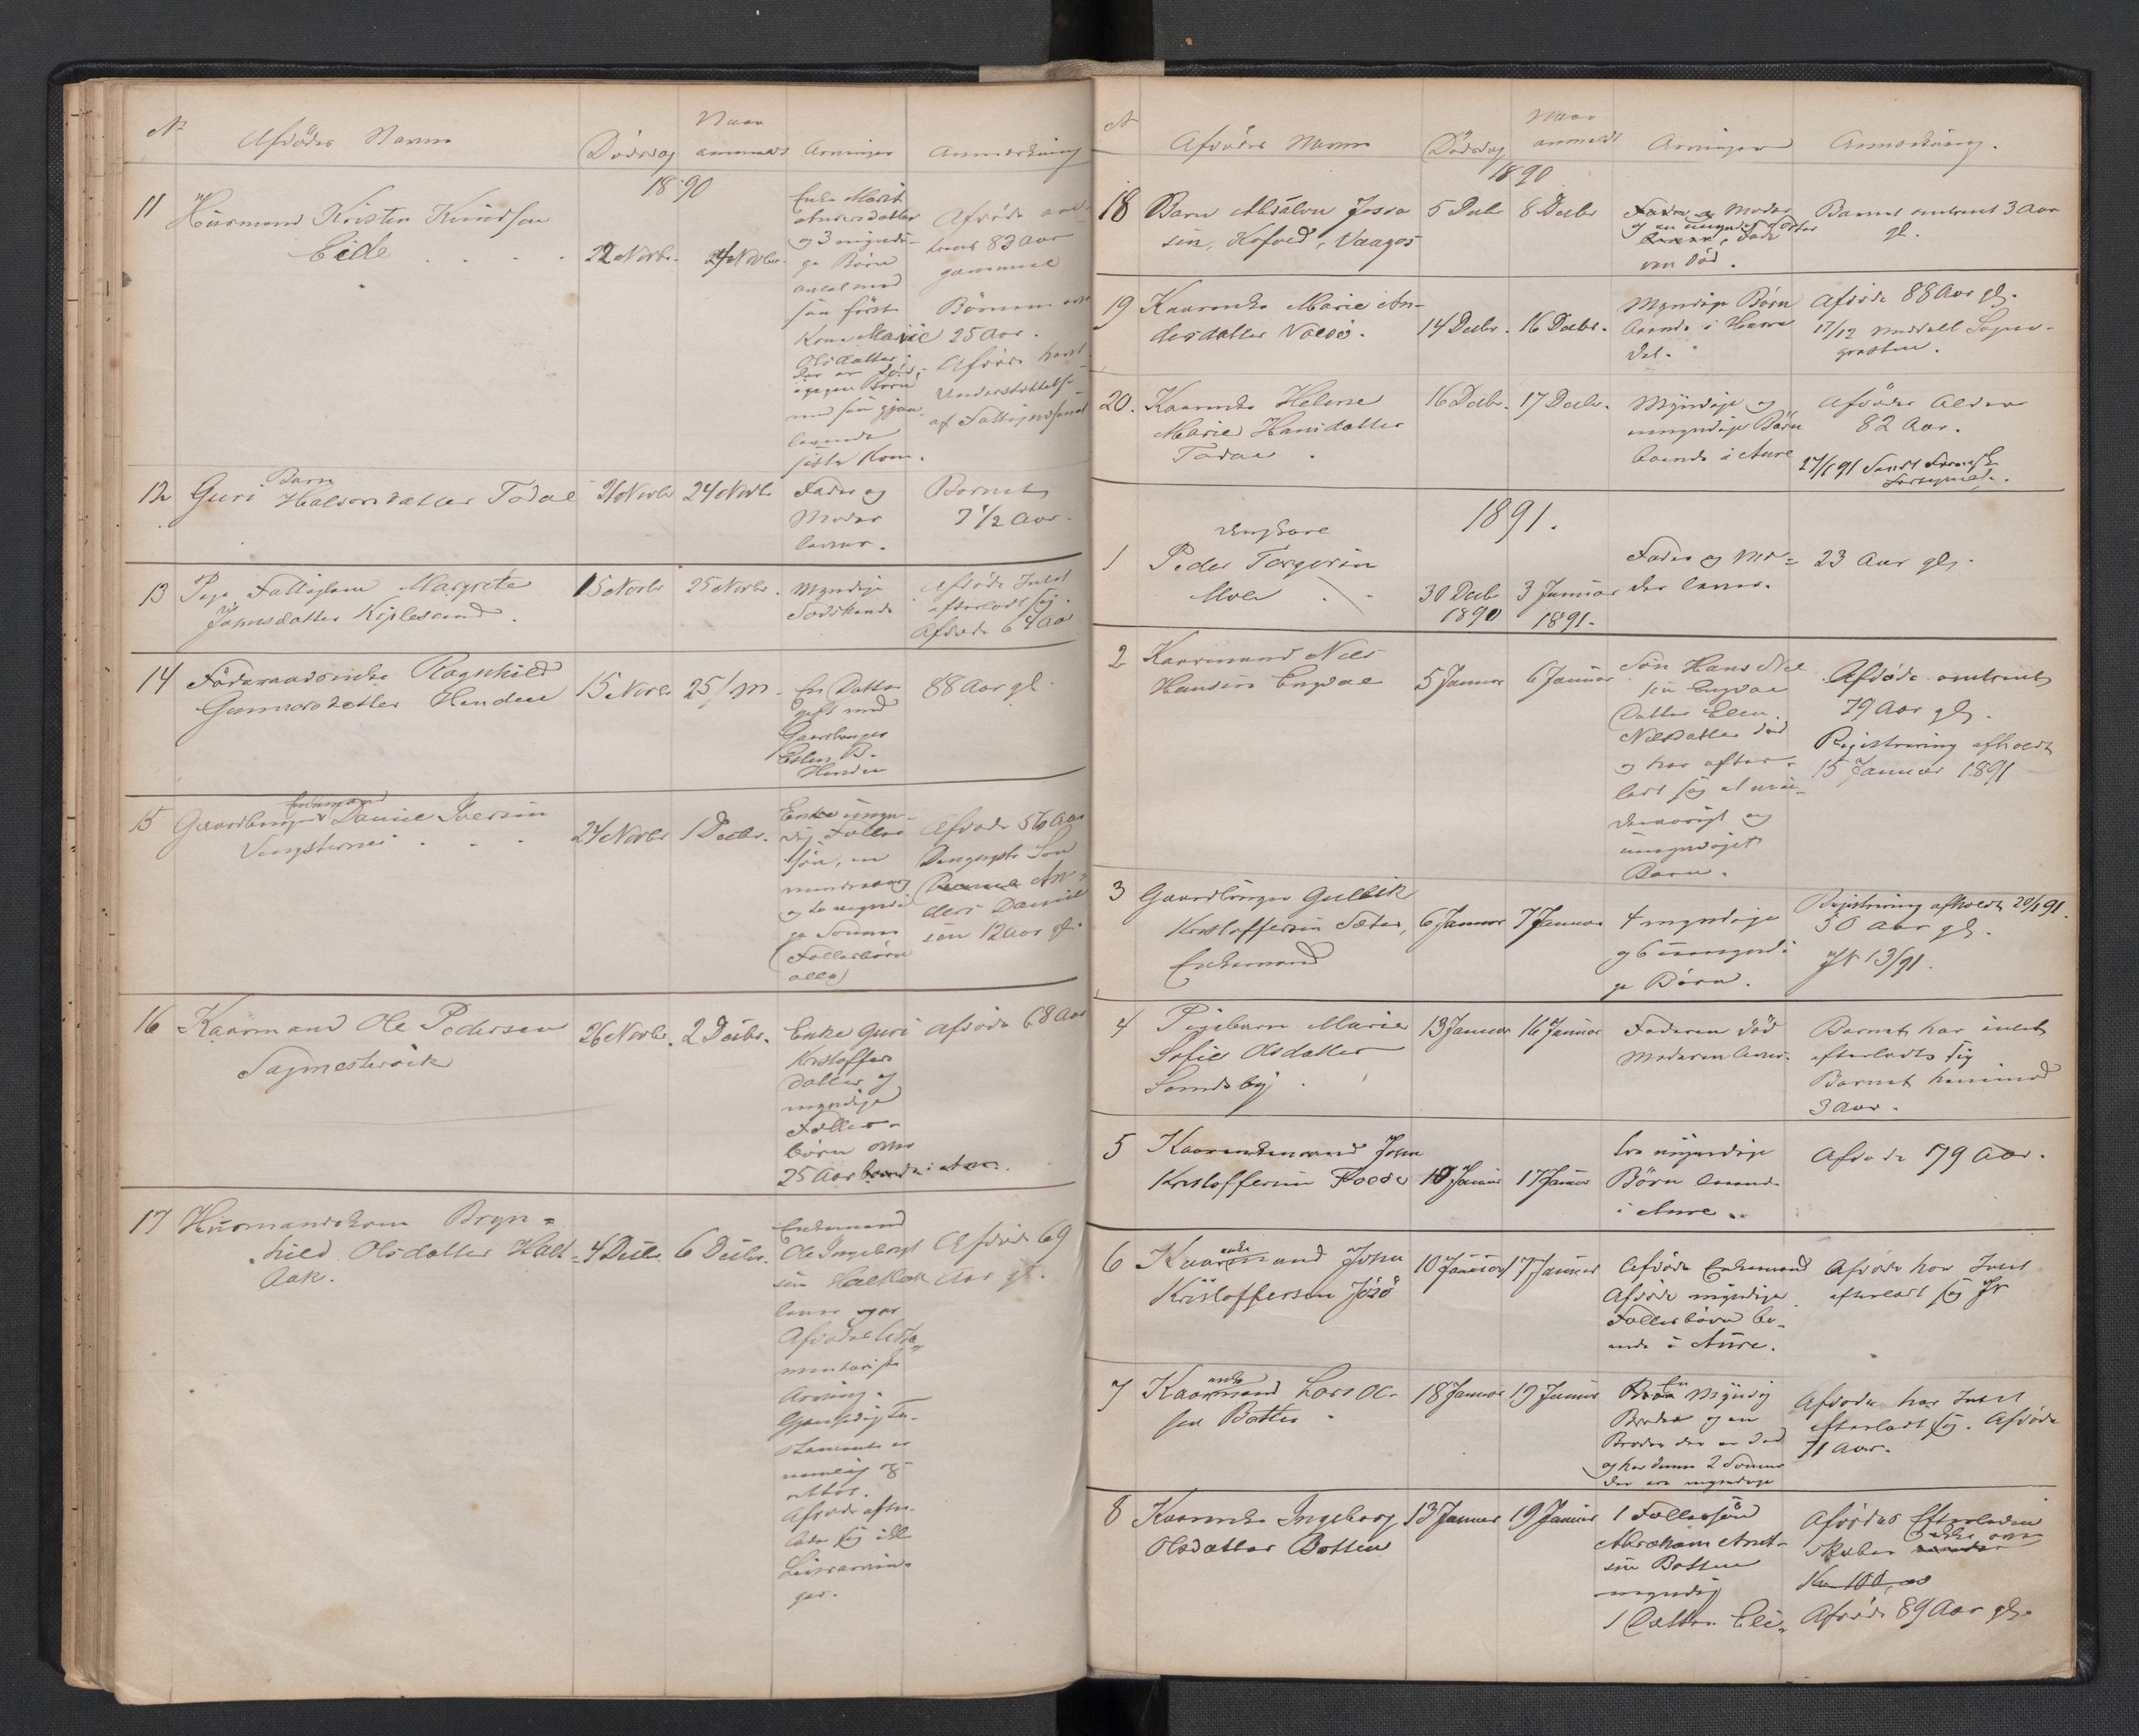 No
Afdødes Navn
Dødsdag
Naar anmeldt
Arvinger
Anmærkning
1890
11 Huusmand Kristen Knudsen
Eide
22 Novbr. 24 Novbr.
Enke Marit
Andersdatter
og 3 myndi-
ge Børn
avlet med
sin første
Kone Marie
Olsdatter
der er død,
ingen Børn
med sin gjen-
levende
sidste Kone.
Afdøde om-
trent 83 Aar
gammel
Børnene over
25 Aar.
Afdøde havt
Understøttelse
af Fattigvæsenet
12 Barn
Guri Halvorsdatter Todal
21 Novbr 24 Novbr
Fader og
Moder
lever.
Barnet
7 1/2 Aar.
13 Pige Fattiglem Margrete
Johnsdatter Kiplesund.
15 Novbr 25 Novbr.
Myndige
Sødskende
Afdøde Intet
efterladt sig.
Afdøde 64 Aar
14 Føderaadsenke Ragnhild
Gunnarsdatter Henden
15 Novbr 25/m.
En Datter
gift med
Gaardbruger
Esten B.
Henden
88 Aar gl.
15 Enkemand
Gaardbruger Daniel Iversen
24 Novbr 1 Decbr.
Afdøde 56 Aar
Den yngste Søn
Daniel An-
ders Daniel
sen 12 Aar gl.
og to myndi
ge Sønner
(Fællesbørn
alle)
16 Kaarmand Ole Pedersen
26 Novbr. 2 Decbr.
Enke Guri
Kristoffers
datter og
myndige
Fælles-
børn over
25 Aar boende i Aure.
Afdøde 68 Aar
17 Huusmandskone Bryn=
hild Olsdatter Halt-
Aak.
4 Decbr. 6 Decbr.
Enkemand
Ole Ingebrigt
sen
lever og er
Afdødes testa
mentariske
Arving.
Gjensidig Te-
stamente er
nemlig op-
rettet.
Afdøde efter-
lader sig ikke
Livsarvin-
ger.
Afdøde 69
Aar gl.
No
Afdødes Navn
Dødsdag
Naar anmeldt
Arvinger
Anmærkning.
1890
18 Barn Absalon Jossa
sen, Kofoed, Vaagos
5 Decbr 8 Decbr
Fader og Moder
og en umyndig Søster
lever, Fader
en død.
Barnet omtrent 3 Aar
gl.
19 Kaarenke Marie An-
dersdatter Valsø.
14 Decbr. 16 Decbr.
Myndige Børn
boende i Halsa
Afdøde 88 Aar gl.
17/12 meddelt Sogne-
præsten.
20. Kaarenke Helene
Marie Hansdatter
Todal
16 Decbr. 17 Decbr.
Myndige og
umyndige Børn
boende i Aure
Afdødes Alder
82 Aar.
27/1 91 Sendt
1891.
1 Ungkarl
Peder Torgersen
Moe
30 Decb 3 Januar
1890 1891.
Fader og Mo=
der lever.
23 Aar gl.
2 Kaarmand Nils
Hansen Engdal
5 Januar 6 Januar
Søn Hans Nil
sen Engdal
Datter Elen
Nilsdatter død
og har efter-
ladt sig et min-
dreaarigt og
umyndigt
Barn.
Afdøde omtrent
79 Aar gl.
Registrering afholdt
15 Januar 1891
3 Gaardbruger Gulbik
Kristoffersen Sæter,
Enkemand
6 Januar 7 Januar
4 myndige
og 6 umyndi
ge Børn.
Registrering afholdt 20/1 91.
50 Aar gl.
4 Pigebarn Marie
Sofie Olsdatter
Sandsby
13 Januar 16 Januar
Faderen død
Moderen lever.
Barnet har intet
efterladt sig
Barnet henimod
3 Aar.
5 Kaarenkemand John
Kristoffersen Foede
10 Januar 17 Januar
to myndige
Børn boende
i Aure.
Afdøde 79 Aar.
6 enke
Kaarmand John
Kristoffersen Jøsø
10 Januar 17 Januar
Afdøde Enkemand
Afdøde myndige
Fællesbørn bo-
ende i Aure.
Afdøde har Intet
efterladt sig
7 enke
Kaarmand Lars Ol-
sen Botten
18 Januar 19 Januar
En Myndig
Broder og en
Broder der er død
og har denne 2 Sønner
der ere myndige
Afdøde har Intet
efterladt sig. Afdøde
71 Aar.
8 Kaarenke Ingeborg
Olsdatter Botten
13 Januar 19 Januar
1 Fællessøn
Abraham Arnt-
sen Botten
myndig
1 Datter Eli-
Afdødes Efterladen
skaber ikke over
Kr 100,00
Afdøde 89 Aar gl.